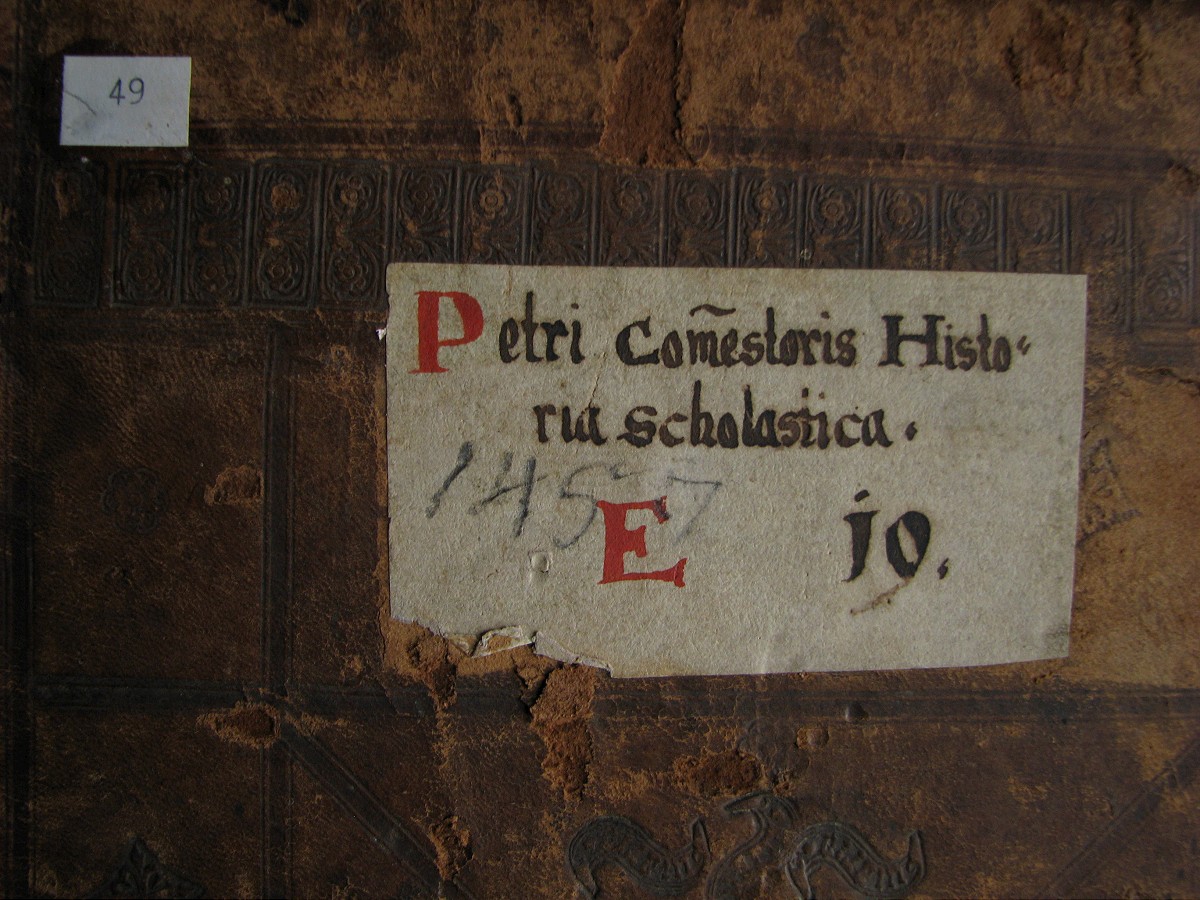 49
Petri Com̃estoris Histo-
ria scholastica.
1457
E jo.